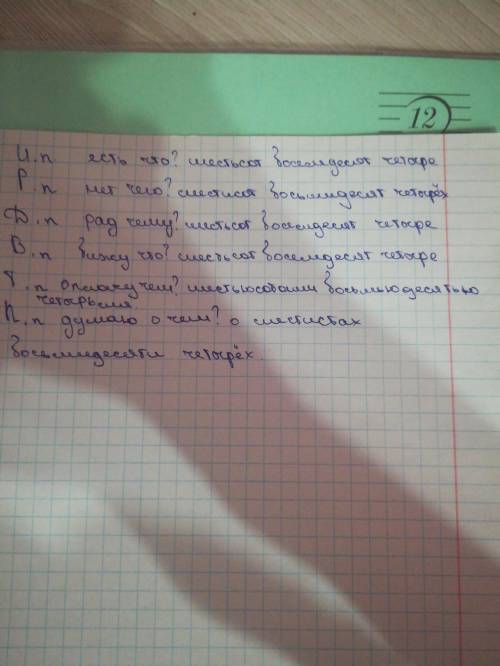 12
И.п есть что? шестьсот восемдесят четыре
Р.п нет чего? шестисот восьмидесят четырёх
Д.п рад чему? шестьсот восемдесят четыре
В.п вижу что? шестьсот восемдесят четыре
Т.п опложу чем? шестьюсотами восьмьюдесятью
четырьмя
П.п думаю о чем? о шестистах
восьмидесяти четырёх.